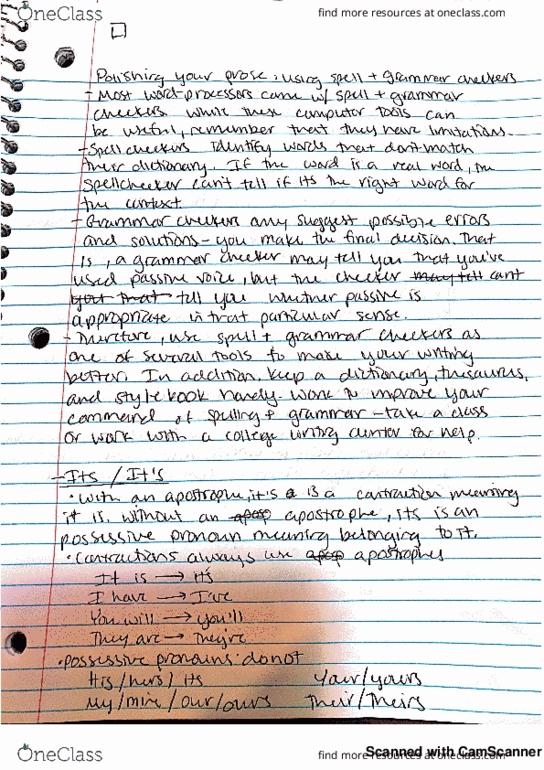 OneClass
find more resources at oneclass.com
Polishing your prose: using spell + grammar checkers
- Most word-processors came w/ spell + grammar
checkers while these computer tools can
be useful, remember that they have limitations.
- Spell checkers identify words that don't match
their dictionary. If the word is a real word, the
spellchecker can't tell if its the right word for
the context
- Grammar checkers any suggest possible errors
and solutions - you make the final decision. That
is, a grammar checker may tell you that you've
used passive voice, but the checker may tell cant
you that tell you whether passive is
appropriate in that particular sense.
- Therefore, use spell + grammar checkers as
one of several tools to make your writing
better. In addition, keep a dictionary, thesaurus,
and style book handy - work to improve your
command of spelling + grammar - take a class
or work with a college writing center for help.
- Its / It's
• with an apostrophe, it's a is a contraction meaning
it is. without an apop apostrophe, its is an
possessive pronoun meaning belonging to it.
• contractions always use apop apostrophes
It is → It's
I have → I've
You will → you'll
They are → They're
• possessive pronouns do not
His/hers/its Your/yours
My/mine/our/ours Their/Theirs
OneClass
find more resources at oneclass.com
Scanned with CamScanner